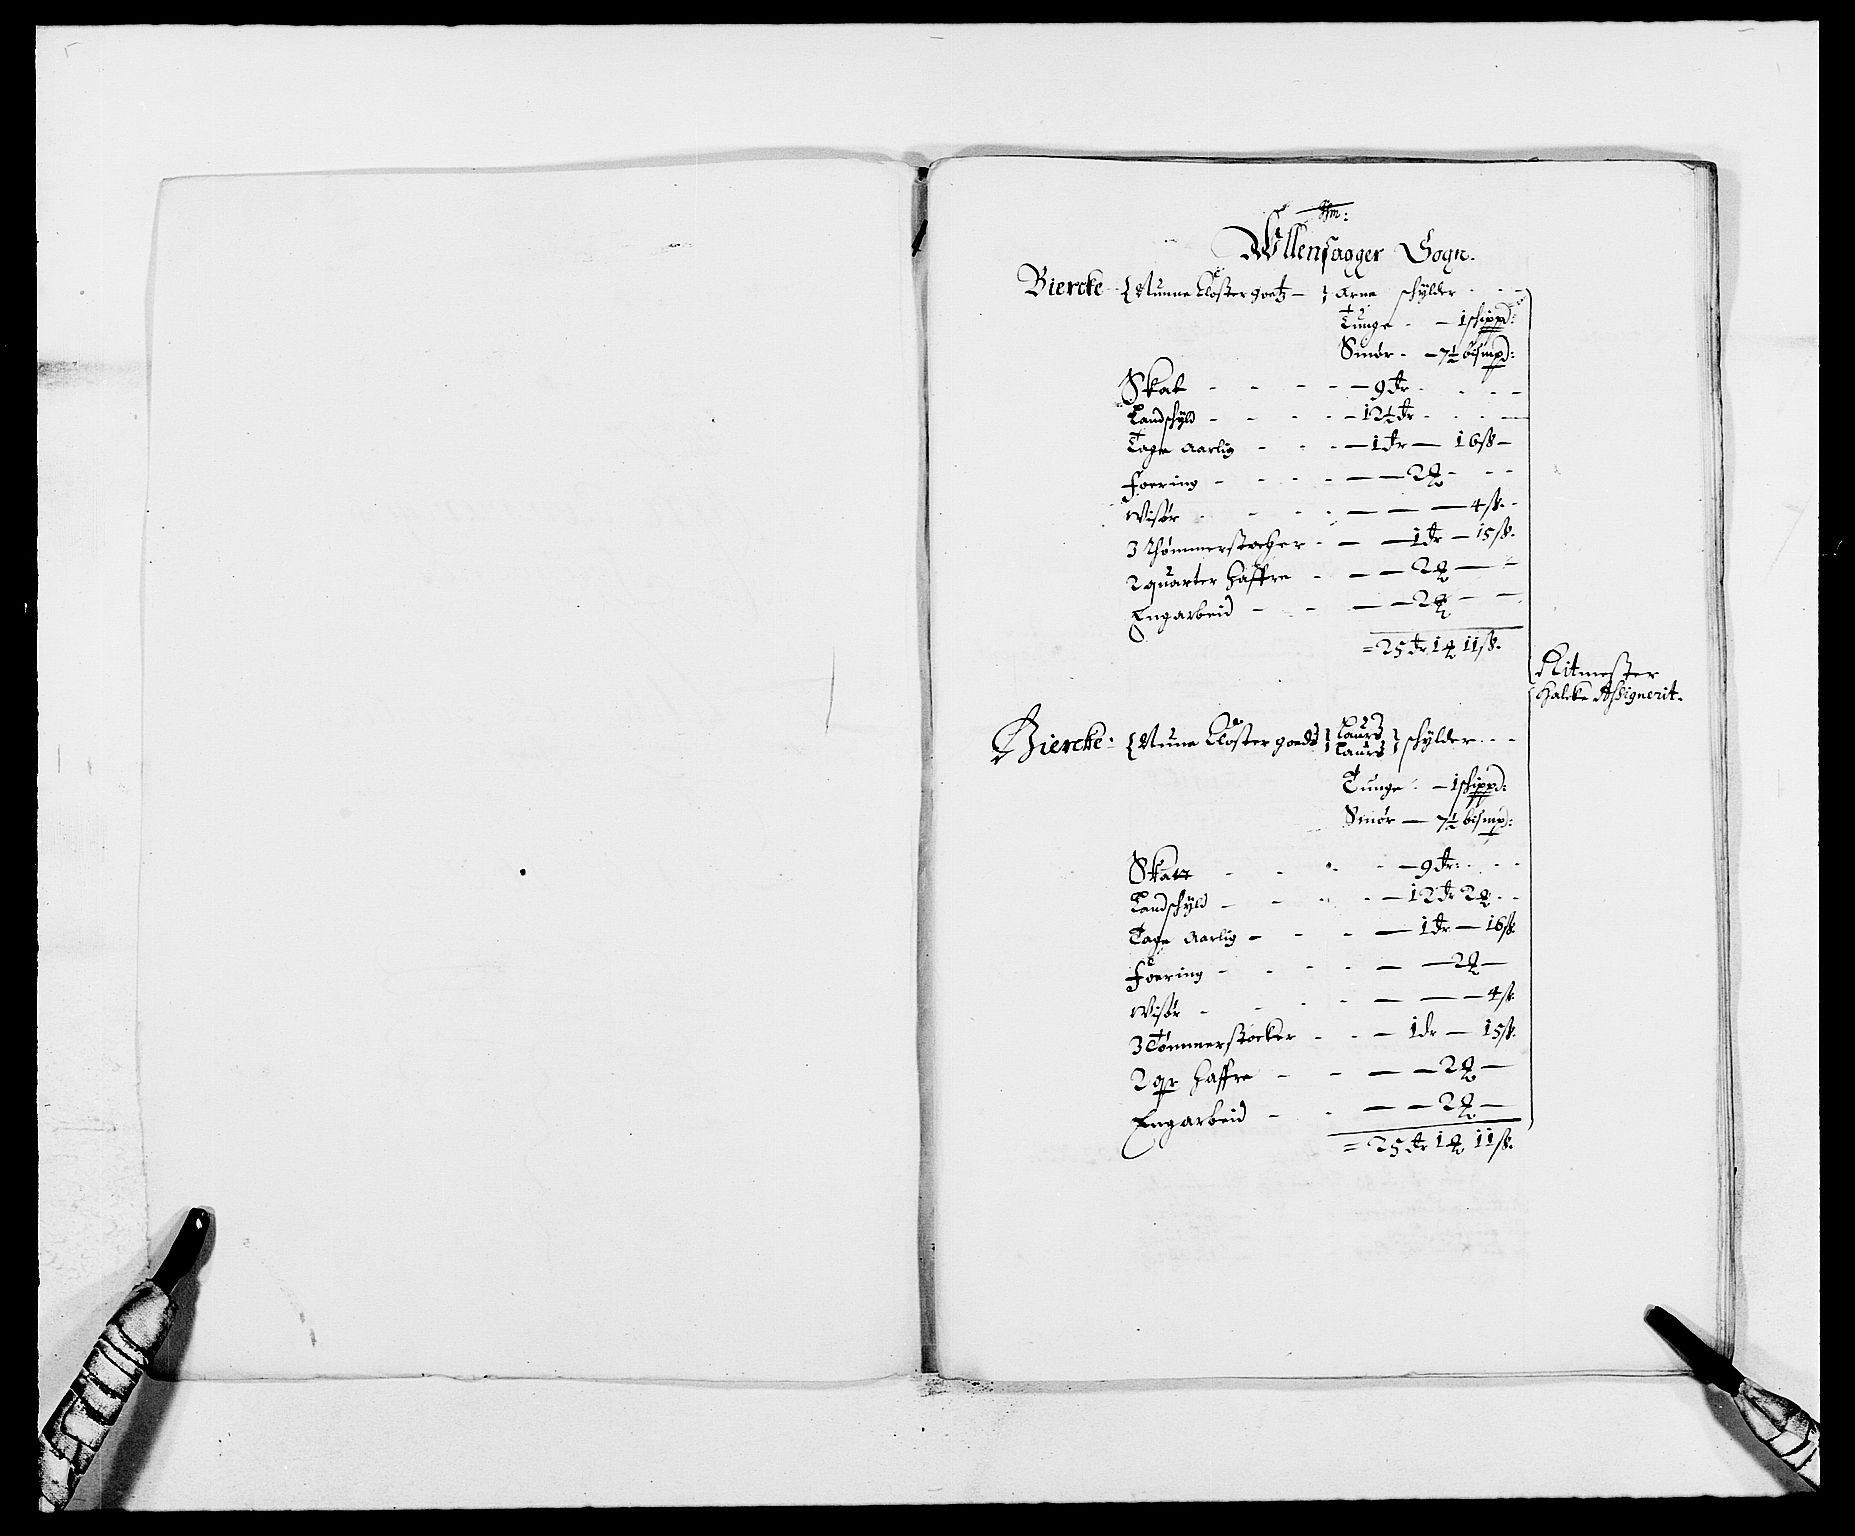 Ullensagger Sogn.
Biercke { Nunne Closter goetz – } Arne schylder
Tunge – 1 schippd:
Smör – 7½ bismpd:
Skat – 9 dr
Landschyld – 12½ dr
Tage Aarlig – 1 dr – 16 ß
Foering – 2
Wisör – 4 ß
3 Thömmerstocker – 1 dr – 15 ß.
2 quarter Haffre – 2
Engarbeid – 2
= 25 dr 1 11 ß.
Ritmester
Halcke Assignerit.
Biercke: { Nunne Closter goeds } Laurs Laurs } schylder
Tunge – 1 schippd:
Smör – 7½ bismpd:
Skatt – 9 dr:
Landschyld – 12 dr 2
Tage Aarlig – 1 dr – 16 ß
Foering – 2
Wisör – 4 ß
3 Tömmerstocker – 1 dr – 15 ß.
2 qr Haffre – 2
Engarbeid – 2
= 25 dr 1 11 ß.